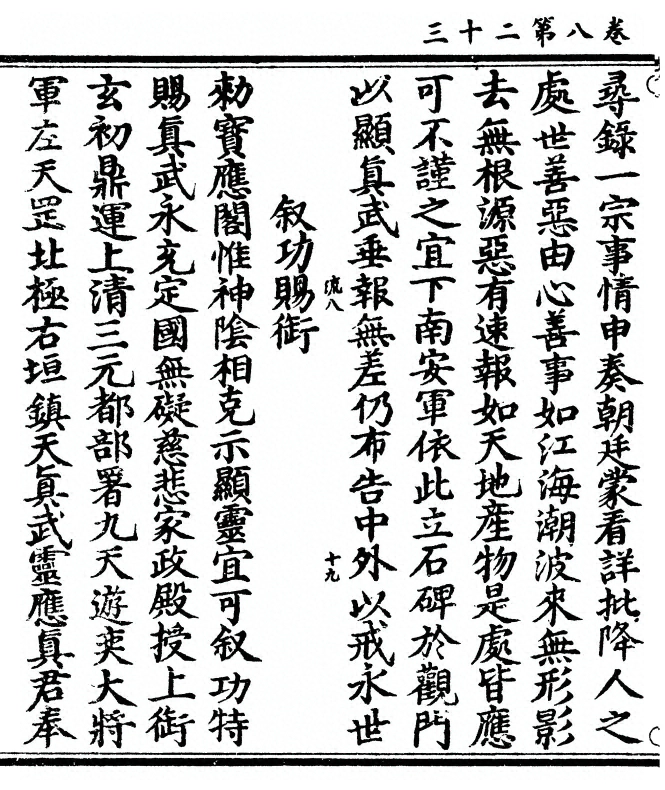 卷八第二十三
尋錄一宗事情申奏朝廷蒙看詳批降人之
處世善惡由心善事如江海潮波來無形影
去無根源惡有速報如天地產物是處皆應
可不謹之宜下南安軍依此立石碑於觀門
以顯真武垂報無差仍布告中外以戒永世
流八
十九
叙功賜衘
勑寶應閣惟神陰相克示顯靈宜可叙功特
賜真武永充定國無礙慈悲家政殿授上衘
玄初鼎運上清三元都部署九天遊奕大將
軍左天罡北極右垣鎮天真武靈應真君奉